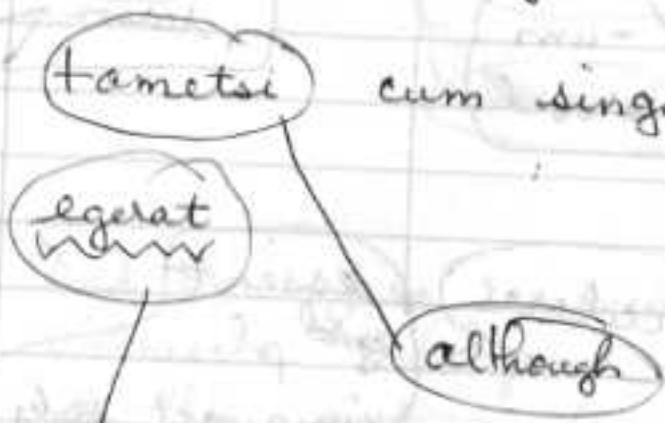 tametsi cum sing
egerat
although